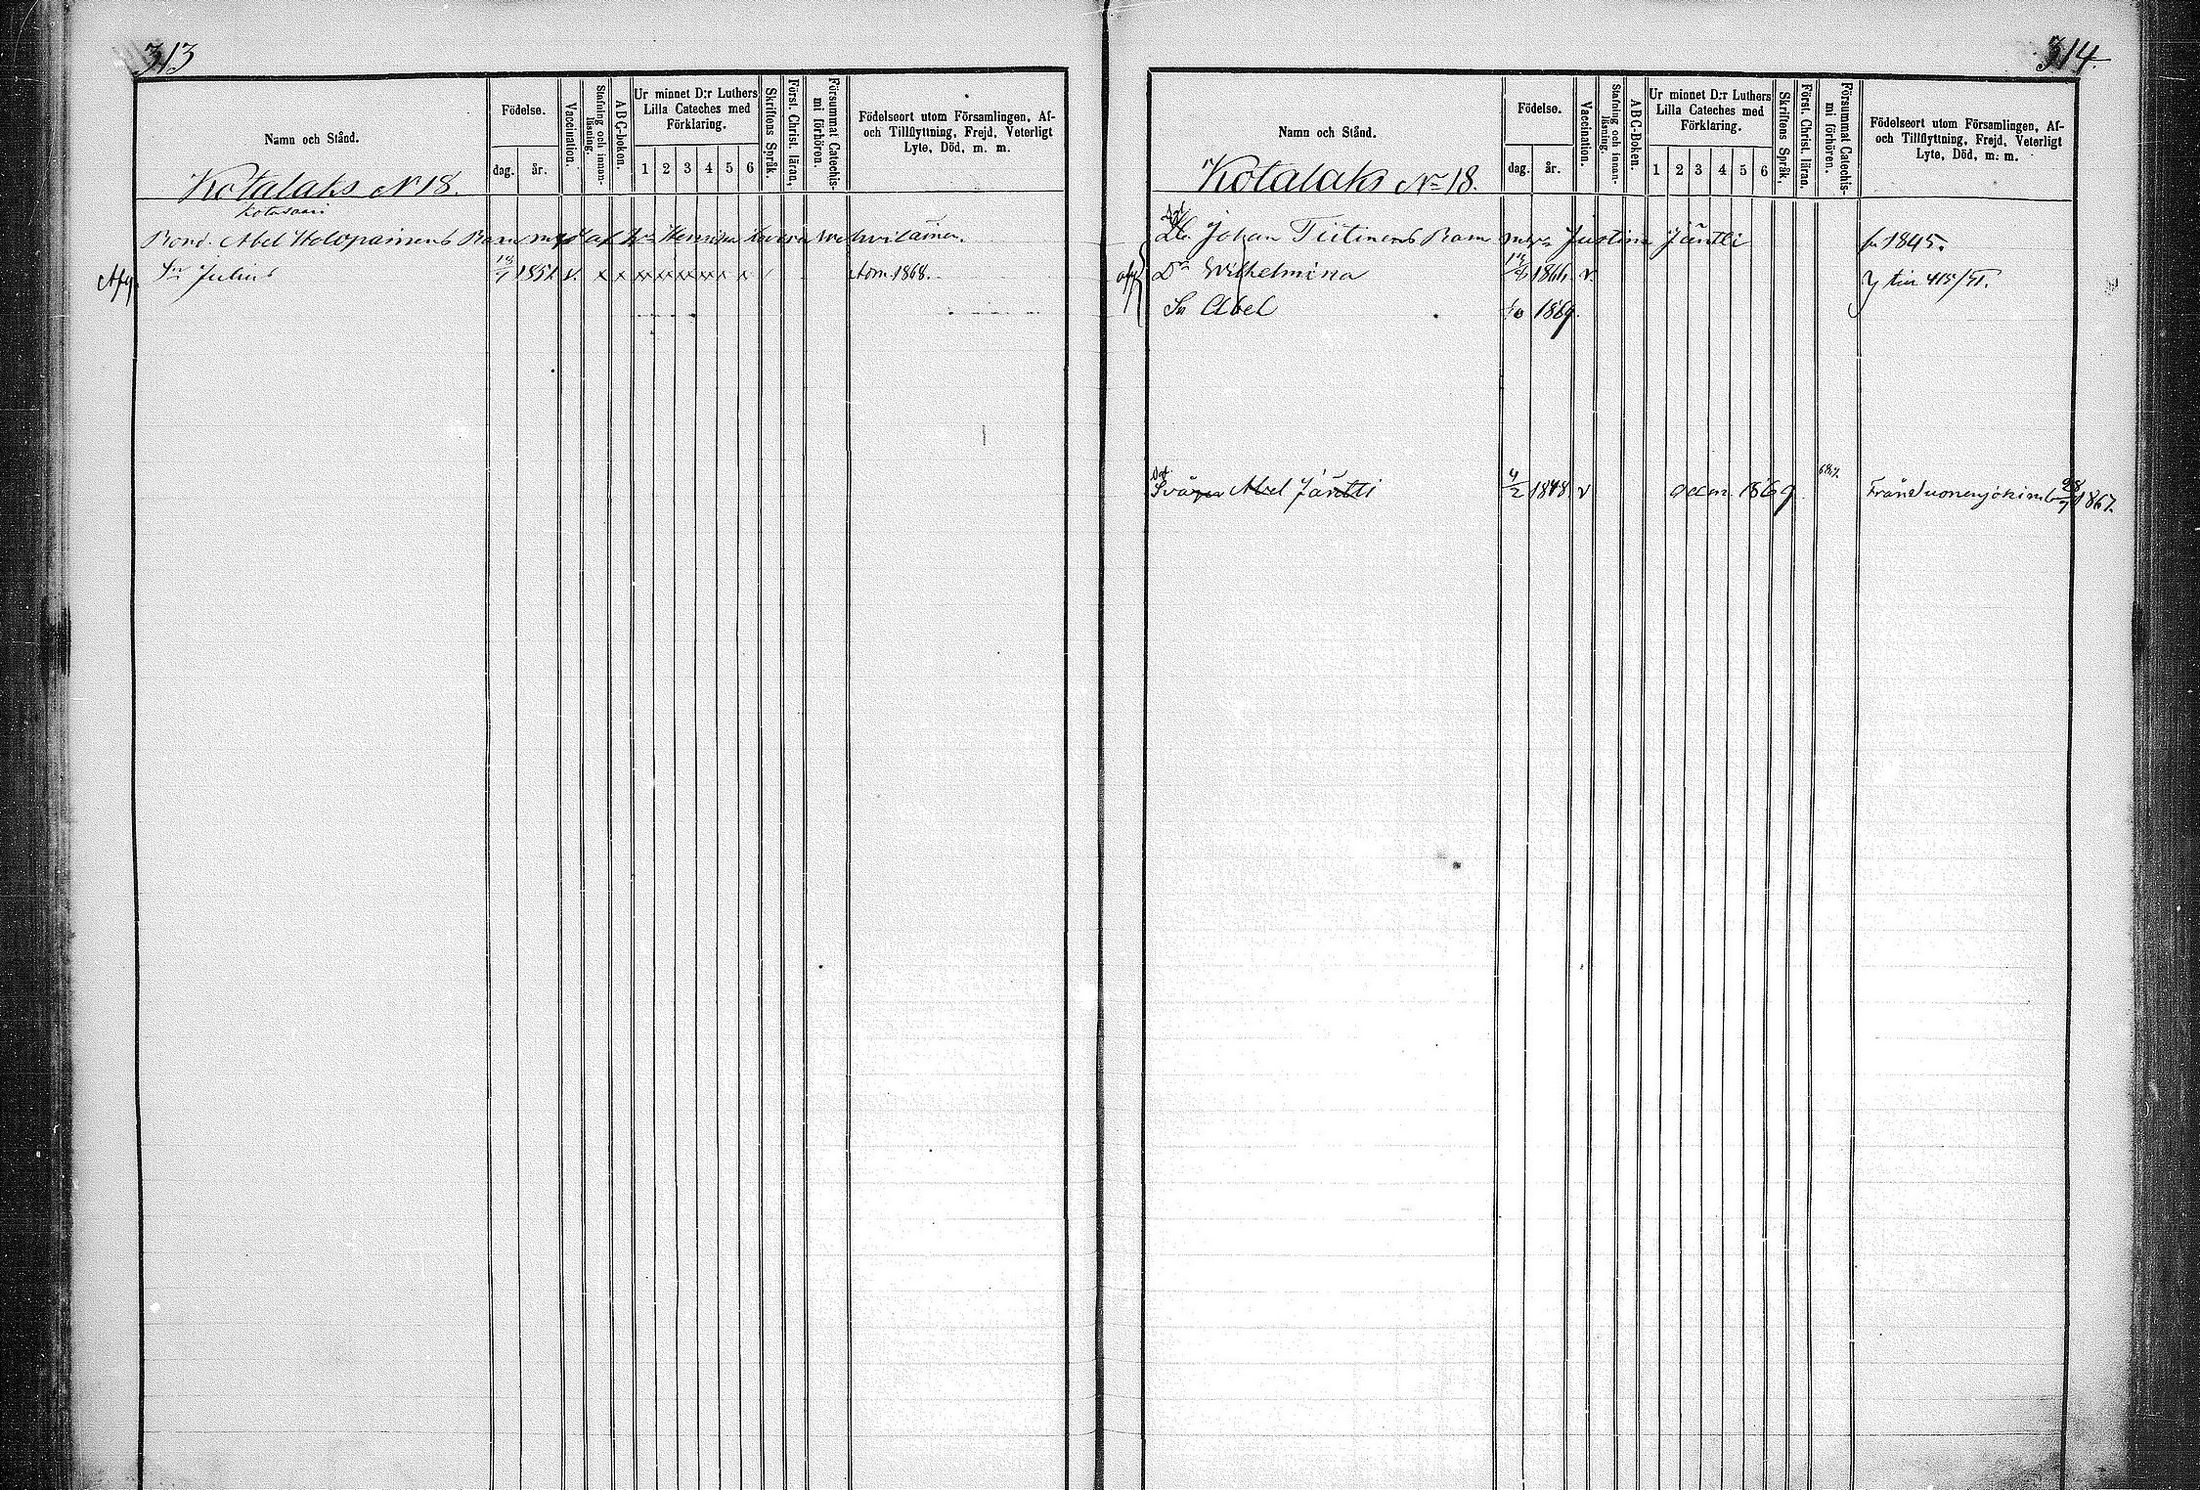 313
Namn och Stånd.
Födelse.
dag. år.
Vaccination.
Stafning och innan-
läsning.
A B C-boken.
Ur minnet D:r Luthers
Lilla Cateches med
Förklaring.
1 2 3 4 5 6
Skriftens Språk.
Först. Christ. läran,
Försummat Catechis-
mi förhören.
Födelseort utom Församlingen, Af-
och Tillflyttning, Frejd, Veterligt
Lyte, Död, m. m.
Kotalaks N 18.
Kotasaari
Bond. Abel Holopainens Barn
Sn Julius 1851 v. x x x x x x x x Adm. 1868.
314
Namn och Stånd.
Födelse.
dag. år.
Vaccination.
Stafning och innan-
läsning.
A B C-Boken.
Ur minnet D:r Luthers
Lilla Cateches med
Förklaring.
1 2 3 4 5 6
Skriftens Språk,
Först. Christ. läran.
Försummat Catechis-
mi förhören.
Födelseort utom Församlingen, Af-
och Tillflyttning, Frejd, Veterligt
Lyte, Död, m. m.
Kotalaks No 18.
Johan Tiitinens Barn Justina Jäntti 1845.
Dr Wilhelmina 1866. v
Sn Abel 1869.
Svåger Abel Jäntti 4/2 1848 v 1869 Från 28/7 1867.